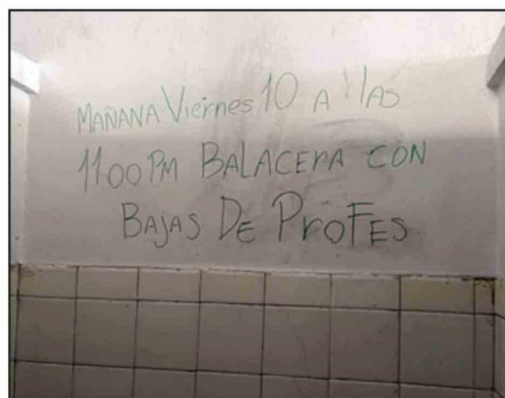 MAÑANA Viernes 10 A lAS
1100 PM BALACErA CON
BAJAS DE ProFES